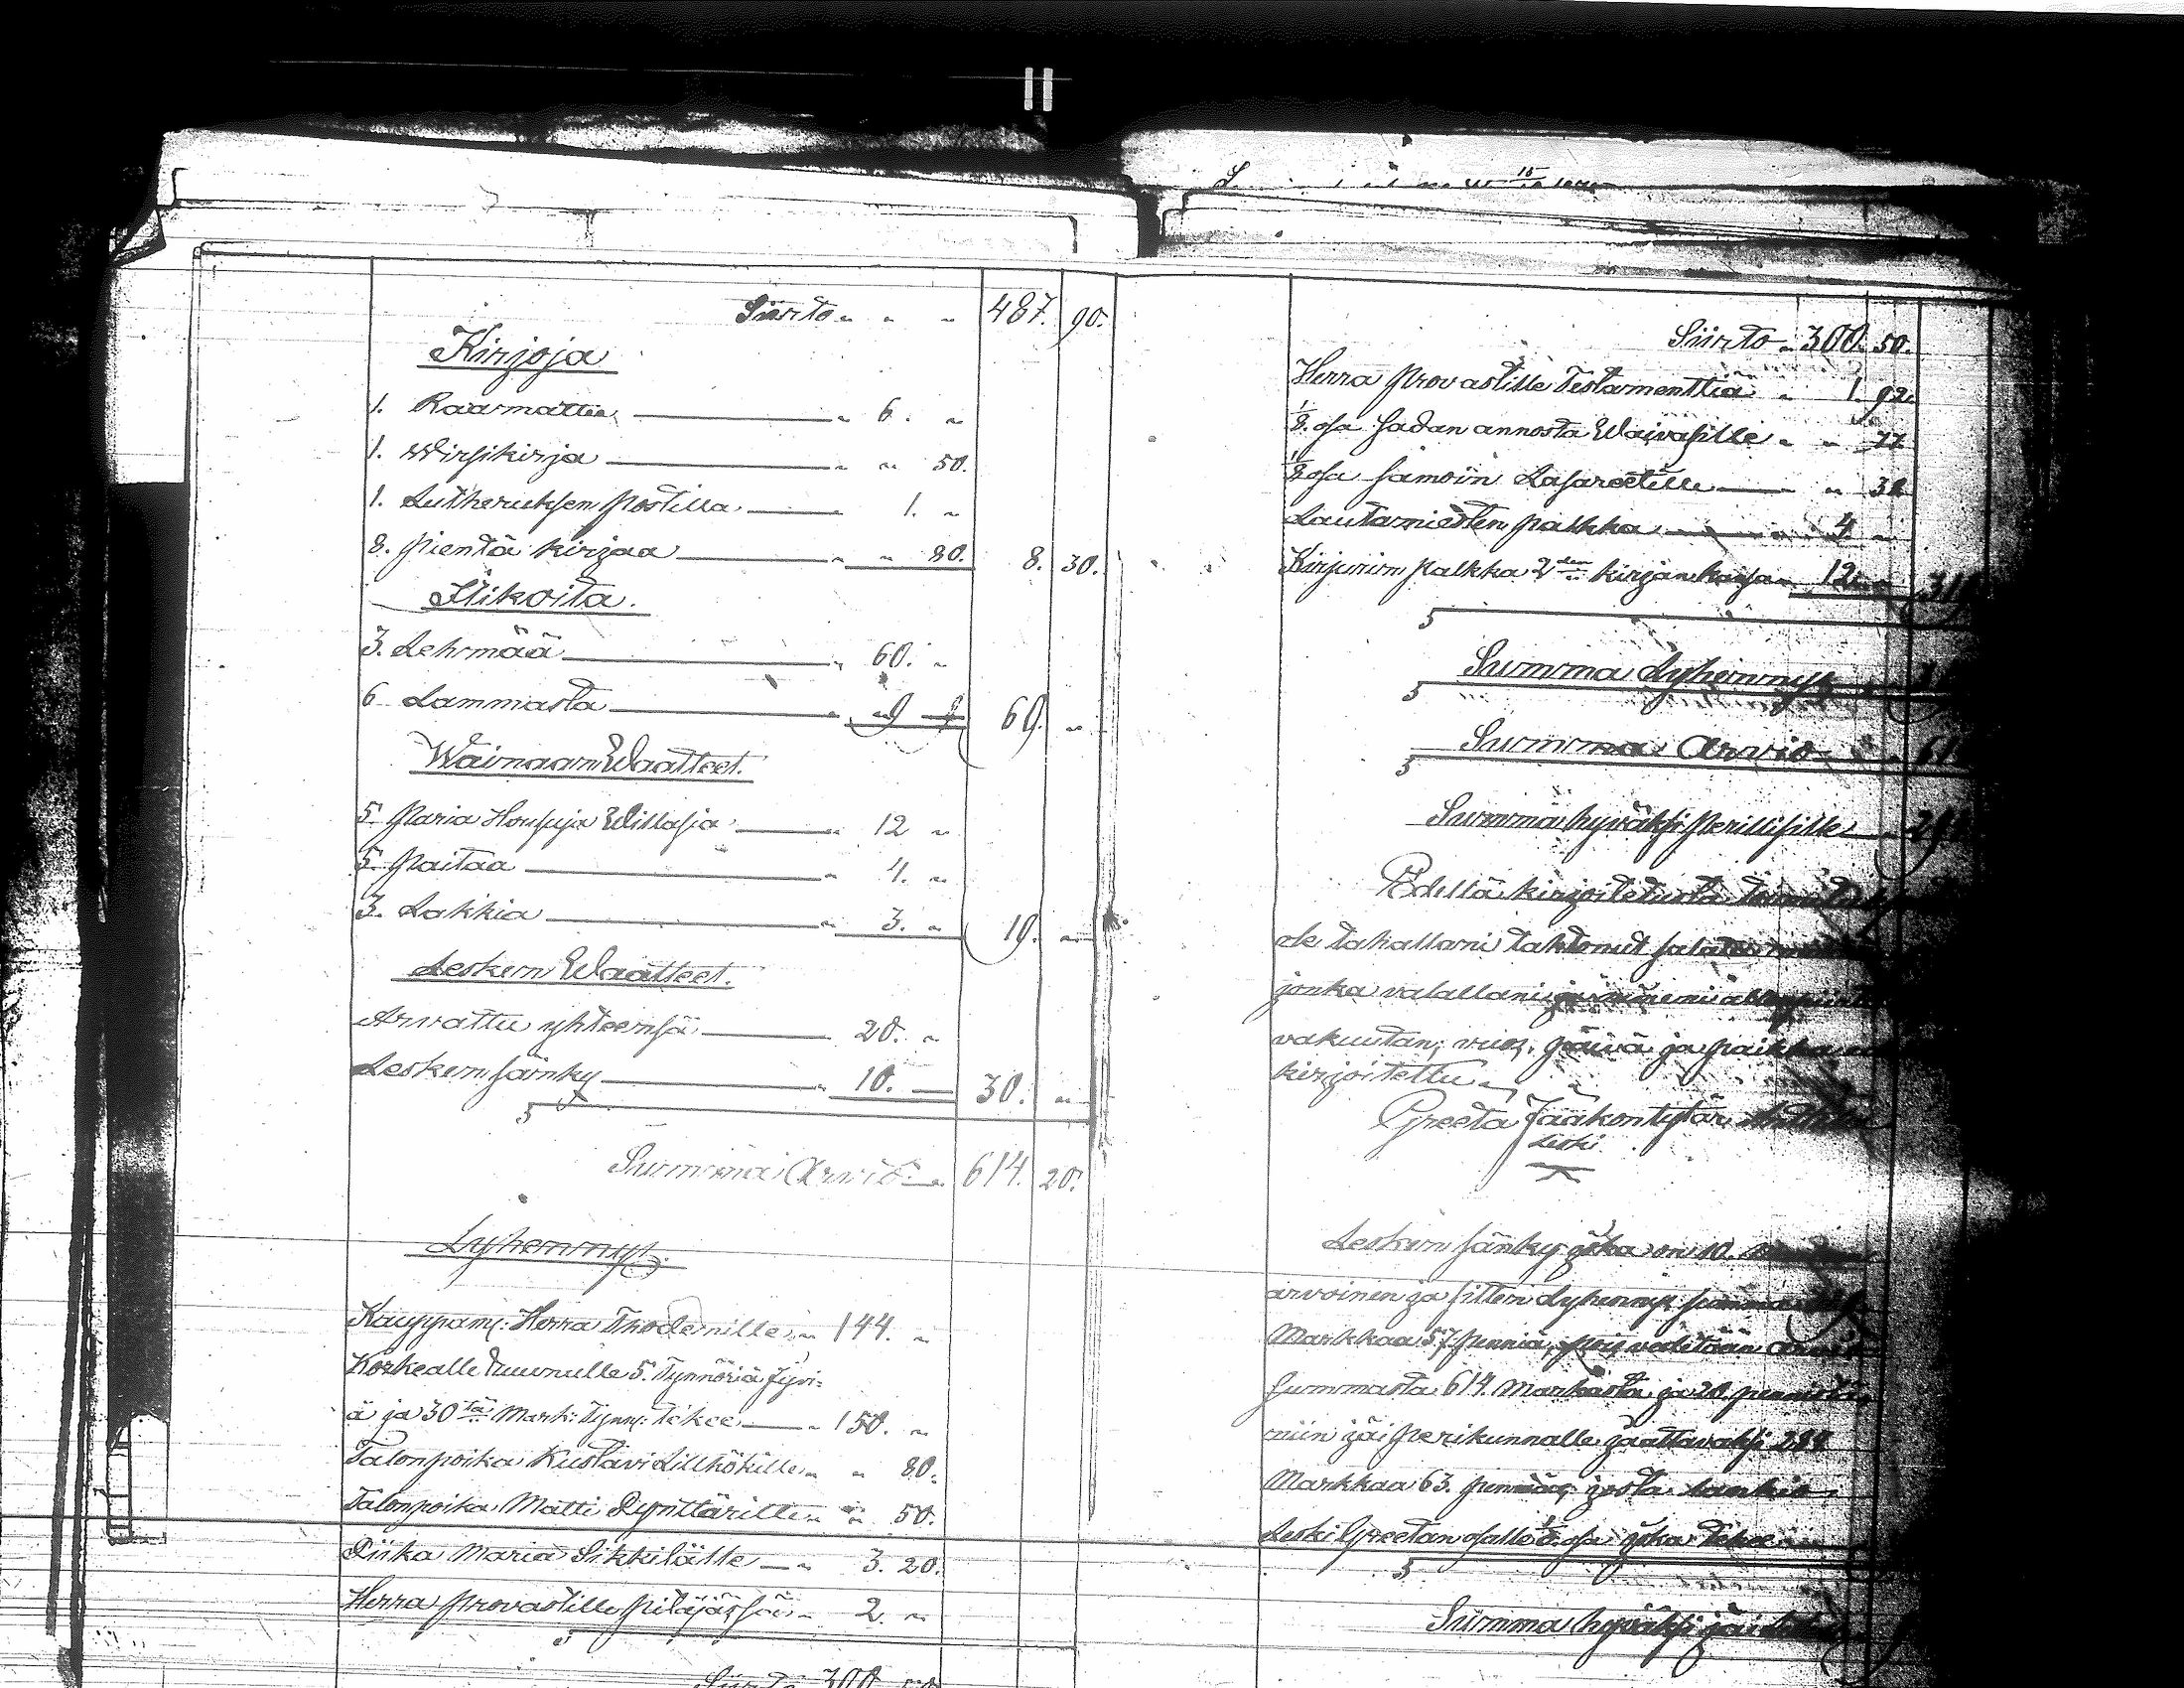 Siirto „ „ „ 487. 90.
Kirjoja
1. Raamattu „ 6. „
1. Wirsikirja „ „ 50.
1. Lutheruksen Postilla 1. „
8. pientä kirjaa „ „ 80. 8. 30.
Elikoita.
3. Lehmää „ 60. „
6 Lammasta „ 9 69. „
Wainaan Waatteet.
5 Paria Housuja Willasia „ 12 „
5. Paitaa „ 4. „
3. Lakkia „ 3. „ 19. „
Lesken Waatteet.
Arvattu yhteensä 20. „
Lesken sänky „ 10. 30. „
Summa Arvio „ 614. 20.
Lyhennys.
Kauppam: Herra Thodenille „ 144. „
Korkealle Kruunulle 5. Tynnöriä Jyvi-
ä ja 30tä Mark: Tynny: tekee „ 150. „
Talonpoika Kustavi Lillhökille „ „ 80.
Talonpoika Matti „ „ 50.
Piika Maria Sikkilälle „ 3. 20.
Herra Provastille „ 2. „
Siirto 300
Siirto „ 300. 50.
Herra Provastille Testamenttia „ 1. 92.
1/8. osa sadan annosta Waivasille „ „ 77
osa samoin Lasareetille „ 38
Lautamiesten palkka 4 „
Kirjurin palkka 2den kirjan kanssa „ 12 „
Summa Lyhennys
Summa Arvio
Summa hyväksi Perillisille
Edellä kirjoitetusta
ole tahallani tahtonut salata
jonka valallani
vakuutan; vuos, päivä ja paikka
kirjoitettu „ „
Greeta Jaakontytär
Leski.
Lesken sänky joka on 10.
arvoinen ja sitten Lyhennys summa
Markkaa 57 penniä, pois vedetään Arvio
summasta 614. Markasta ja 20. pennistä,
niin jäi Perikunnalle jaattavaksi
Markkaa 63. penniä; josta lankia
Leski Greetan osalle osa joka tekee
Summa hyväksi jäi